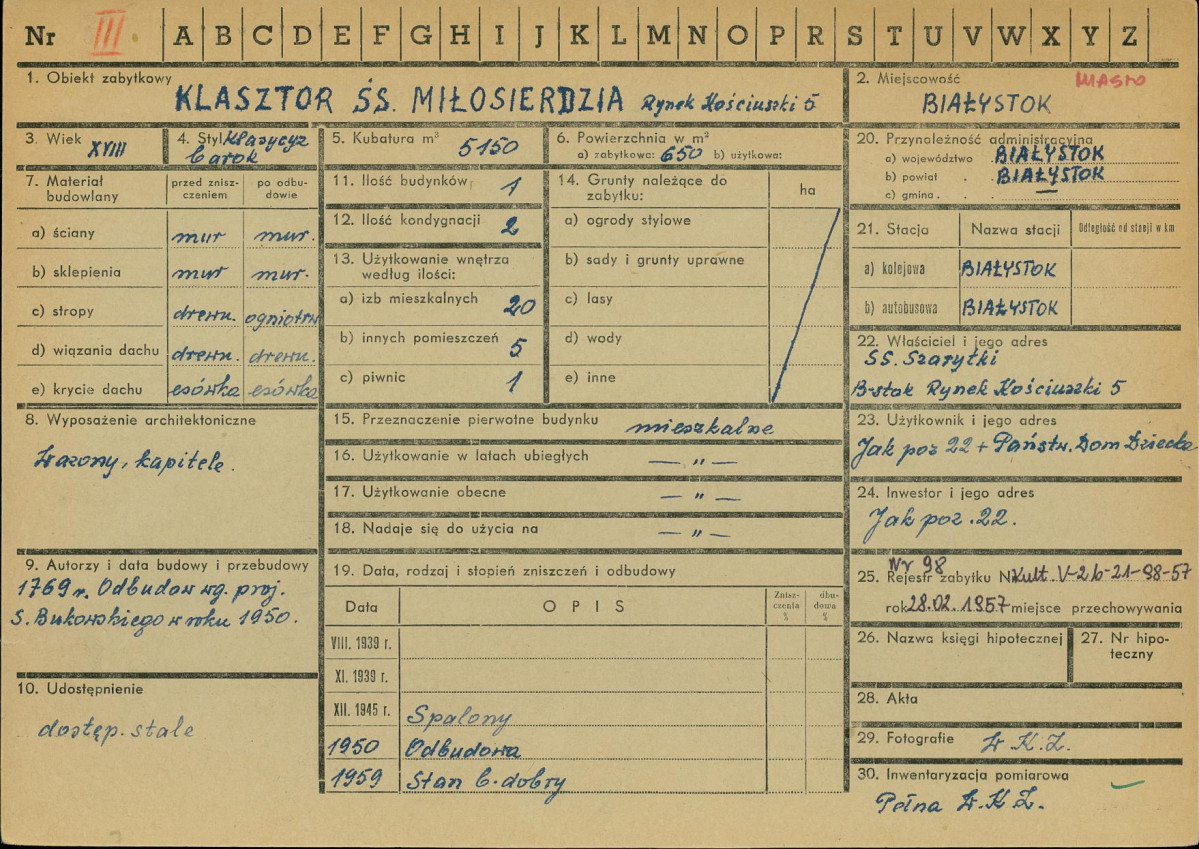 Nr III A B C D E F G H I J K L M N O P R S T U V W X Y Z
1. Obiekt zabytkowy
KLASZTOR ŚS. MIŁOSIERDZIA Rynek Kościuszki 5
2. Miejscowość MIASTO
BIAŁYSTOK
3. Wiek XVIII
4. Styl Klasycyz
barok
5. Kubatura m³ 5150
6. Powierzchnia w m²
a) zabytkowa: 650 b) użytkowa:
7. Materiał budowlany
przed znisz-
czeniem
po odbu-
dowie
a) ściany mur mur.
b) sklepienia mur mur.
c) stropy drewn. ogniotrw
d) wiązania dachu drewn. drewn.
e) krycie dachu esówka esówka
8. Wyposażenie architektoniczne
Wazony, kapitele.
9. Autorzy i data budowy i przebudowy
1769 r. Odbudow wg. proj.
S. Bukowskiego w roku 1950.
10. Udostępnienie
dostęp. stale
11. Ilość budynków 1
12. Ilość kondygnacji 2
13. Użytkowanie wnętrza
według ilości:
a) izb mieszkalnych 20
b) innych pomieszczeń 5
c) piwnic 1
14. Grunty należące do
zabytku:
ha
a) ogrody stylowe
b) sady i grunty uprawne
c) lasy
d) wody
e) inne
15. Przeznaczenie pierwotne budynku mieszkalne
16. Użytkowanie w latach ubiegłych — „ —
17. Użytkowanie obecne — „ —
18. Nadaje się do użycia na — „ —
19. Data, rodzaj i stopień zniszczeń i odbudowy
Data OPIS
Znisz-
czenia
%
dbu-
dowa
%
VIII. 1939 r.
XI. 1939 r.
XII. 1945 r. Spalony
1950 Odbudowa
1959 Stan b. dobry
20. Przynależność administracyjna
a) województwo BIAŁYSTOK
b) powiat BIAŁYSTOK
c) gmina . —
21. Stacja Nazwa stacji Odległość od stacji w km
a) kolejowa BIAŁYSTOK
b) autobusowa BIAŁYSTOK
22. Właściciel i jego adres
SS. Szarytki
B-stok Rynek Kościuszki 5
23. Użytkownik i jego adres
Jak poz 22 + Państw. Dom Dziecka
24. Inwestor i jego adres
Jak poz. 22.
Nr 98
25. Rejestr zabytku N Kult. V-2b-21-98-57
rok 28.02.1957 miejsce przechowywania
26. Nazwa księgi hipotecznej
27. Nr hipo-
teczny
28. Akta
29. Fotografie W.K.Z.
30. Inwentaryzacja pomiarowa
Pełna W.K.Z.